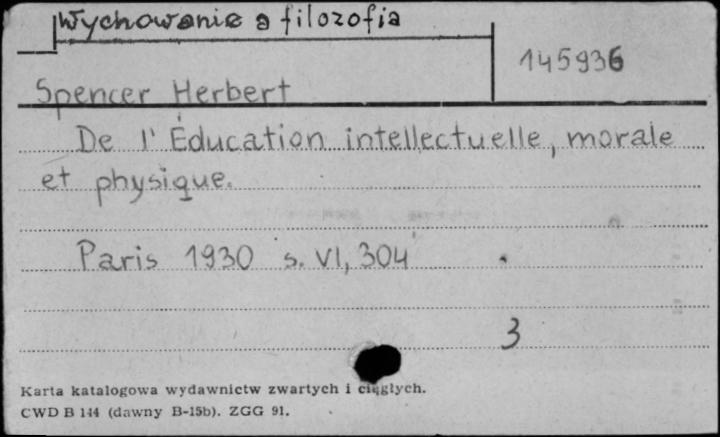 Wychowanie a filozofia
145936
Spencer Herbert
De l'Éducation intellectuelle, morale
et physique.
Paris 1930 s. VI, 304
3
Karta katalogowa wydawnictw zwartych i ciągłych.
CWD B 144 (dawny B-15b). ZGG 91.